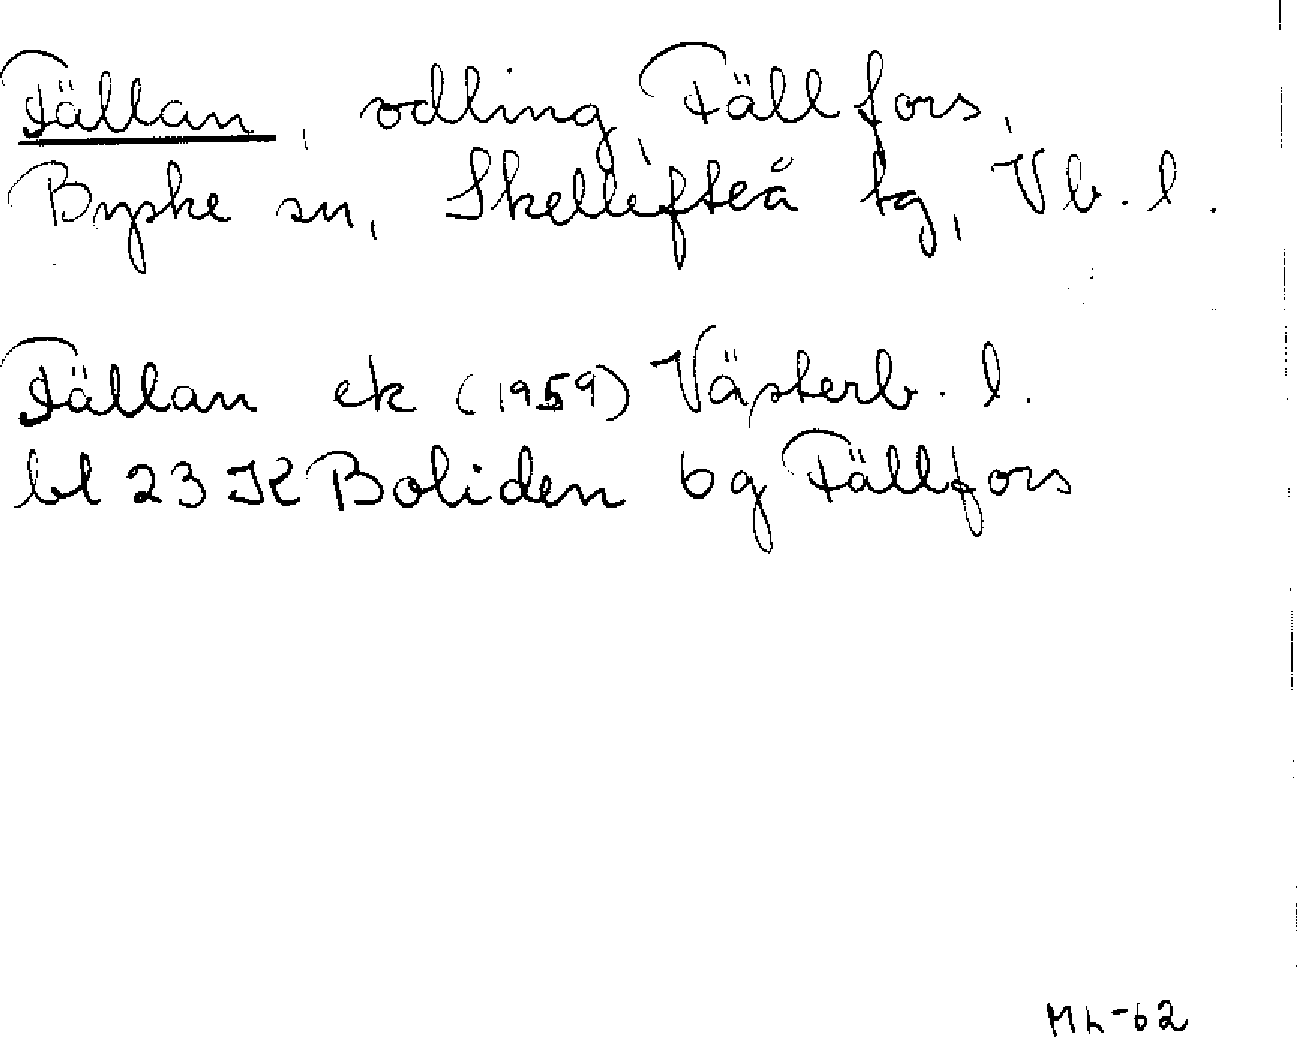 Fällan, odling, Fällfors,
Byske sn, Skellefteå tg, Vb. l.
Fällan ek (1959) Västerb. l.
bl 23 K Boliden bg Fällfors
Mh-62